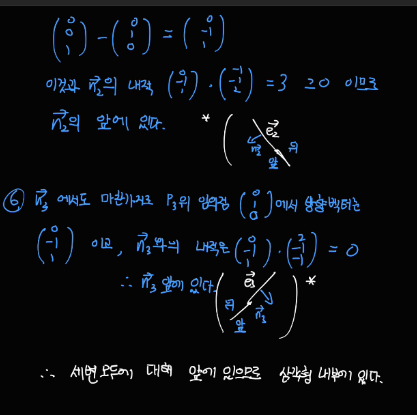 (0 0 1) - (0 1 0) = (0 -1 1)
이것과 n₂의 내적 (0 -1 1) · (-1 -1 2) = 3 ≥0 이므로
n₂의 앞에 있다. * ( e₂ n₂ 뒤 앞
⑥ n₃ 에서도 마찬가지로 P₃위 임의점 (0 1 0)에서 방향벡터는
(0 -1 1) 이고, n₃와의 내적은 (0 -1 1) · (2 -1 -1) = 0
∴ n₃ 앞에 있다. ( e₃ 뒤 n₃ 앞 ) *
∴ 세변 모두에 대해 앞에 있으므로 삼각형 내부에 있다.